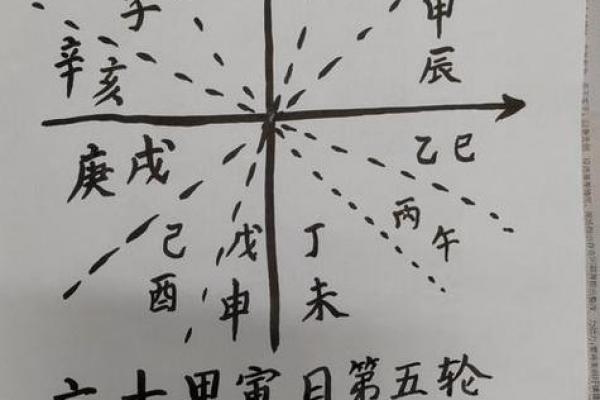 子
甲
辰
辛亥
乙巳
庚戌
丙午
己酉
戊申
丁未
六十甲寅
第五轮